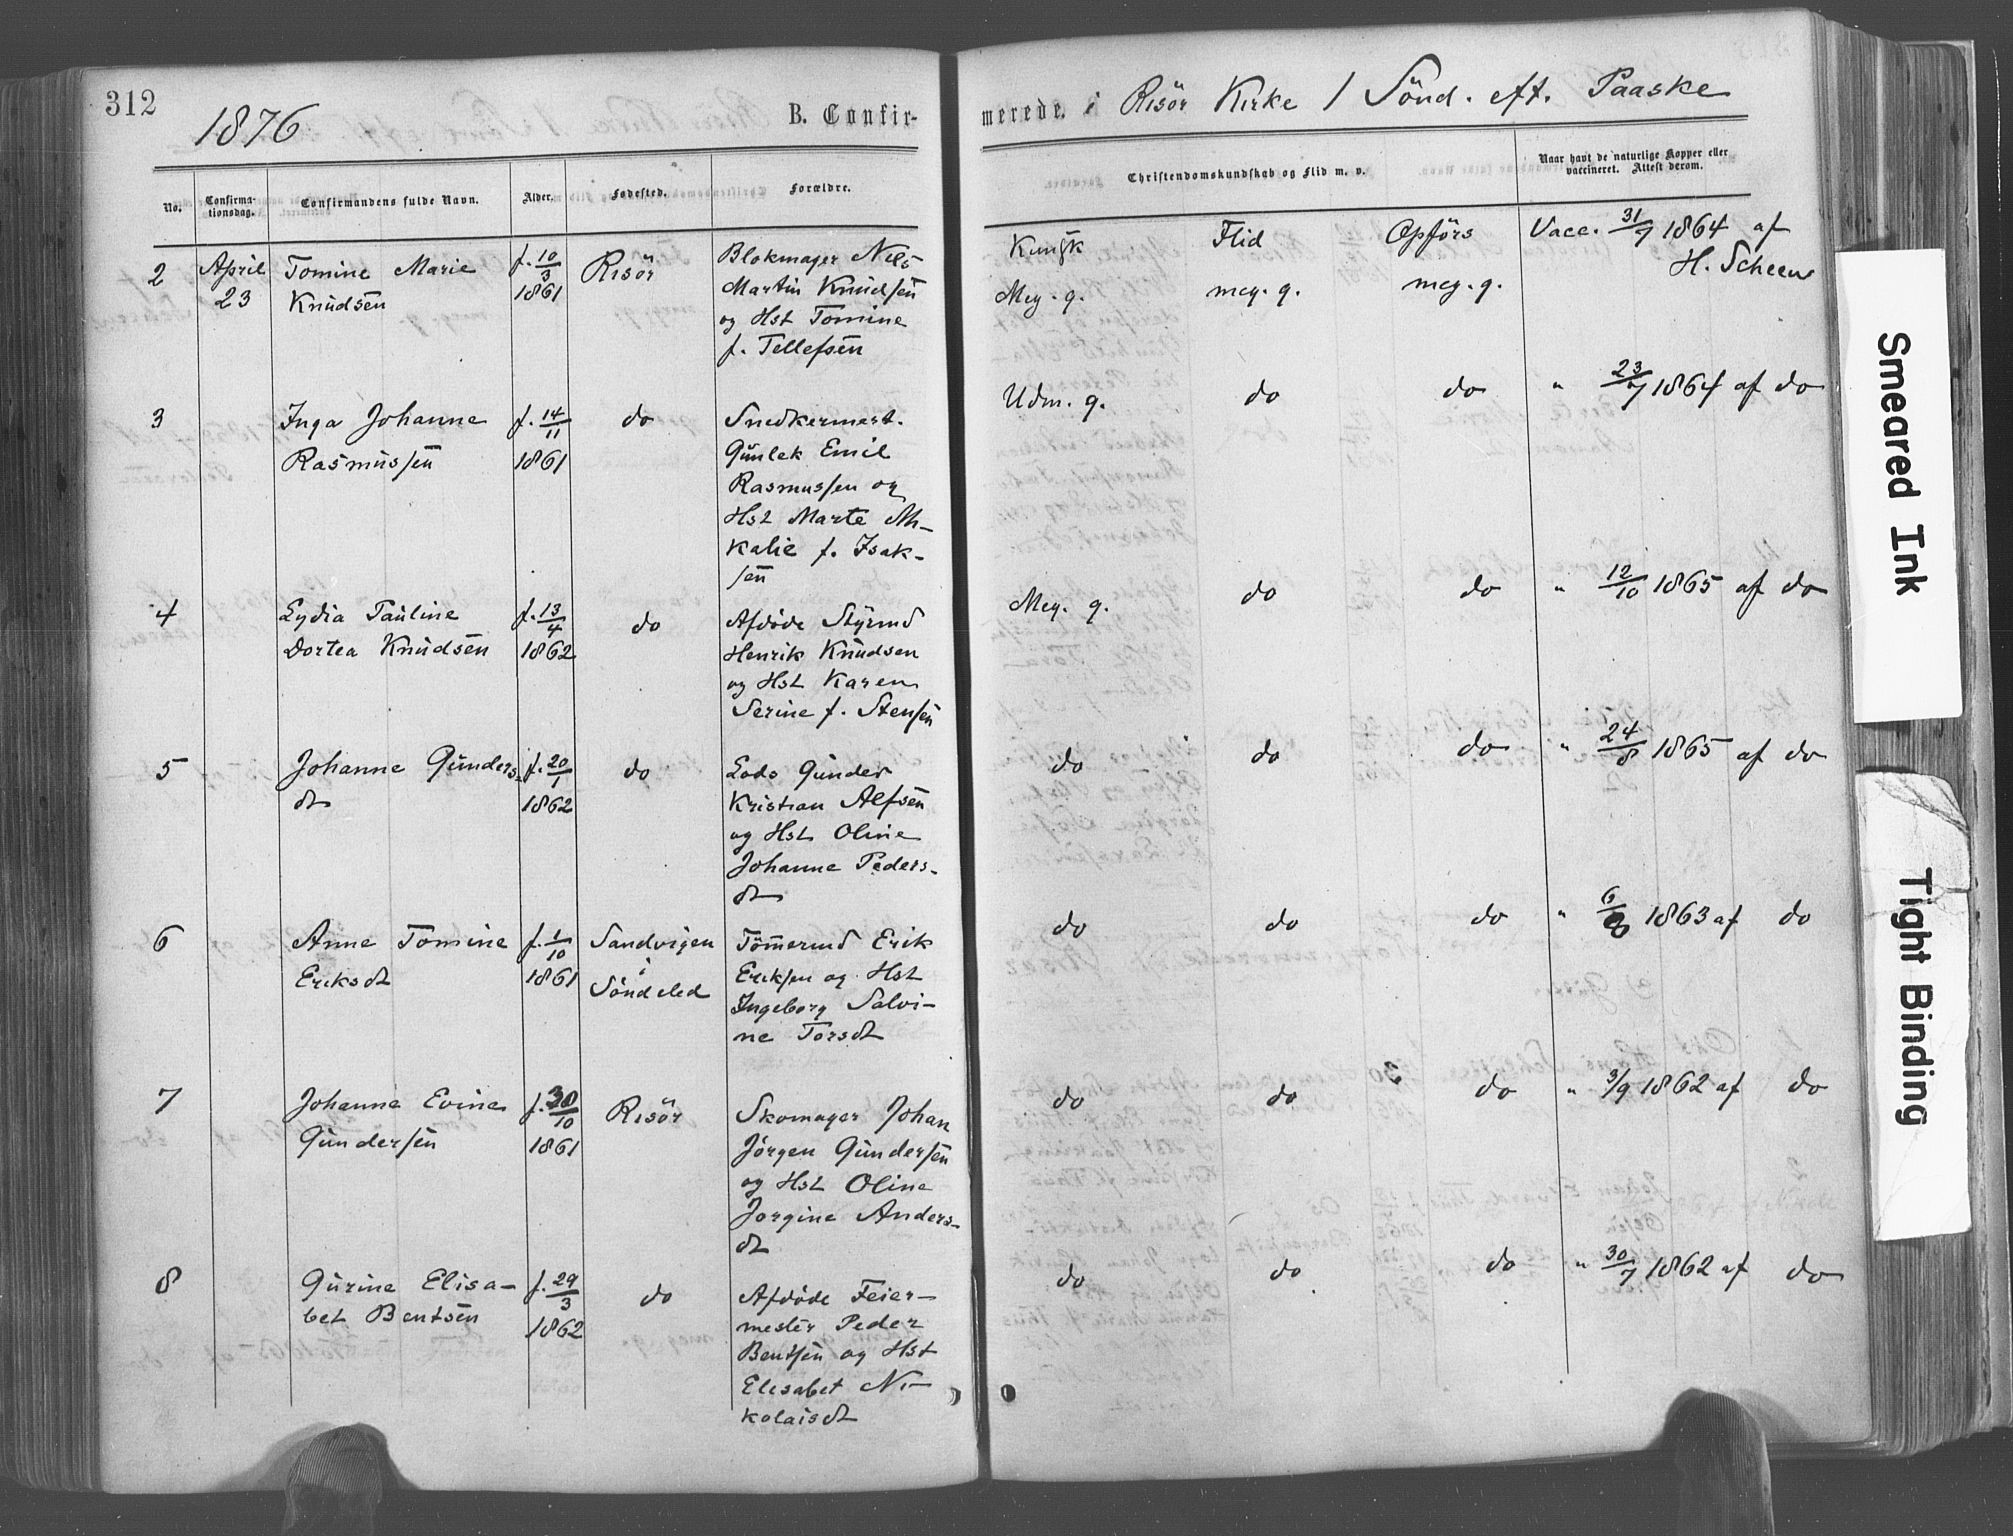 312
1876
B. Confir-
merede. i Risör Kirke 1 Sönd. eft. Paaske
No.
Confirma-
tionsdag.
Confirmandens fulde Navn.
Alder.
Fødested.
Forældre.
Christendomskundskab og Flid m. v.
Naar havt de naturlige Kopper eller
vaccineret. Attest derom.
Kundsk Flid Opførs Vacc. 31/7 1864 af
H. Scheen
2 April Tomine Marie f. 10/3 Risör Blokmager Nils
23 Knudsen 1861 Martin Knudsen
og Hst Tomine
f. Tellefsen
Meg. g. meg. g. meg. g.
3 Inga Johanne f. 14/11 do Snedkermest.
Rasmussen 1861 Gunlek Emil
Rasmussen og
Hst Marte Mi-
kalie f. Isak-
sen
Udm. g. do do " 23/7 1864 af do
4 Lydia Pauline f. 13/4 do Afdøde Styrmd
Dortea Knudsen 1862 Henrik Knudsen
og Hst Karen
Serine f. Stensen
Meg. g. do do " 12/10 1865 af do
5 Johanne Gunders- f. 20/1 do Lods Gunder
dt 1862 Kristian Alfsen
og Hst Oline
Johanne Peders-
dt
do do do " 24/8 1865 af do
6 Anne Tomine f. 1/10 Sandvigen Tömermd Erik
Eriksdt 1861 i Eriksen og Hst
Söndeled Ingeborg Salvi-
ne Torsdt
do do do " 6/8 1863 af do
7 Johanne Evine f. 30/10 Risör Skomager Johan
Gundersen 1861 Jörgen Gundersen
og Hst Oline
Jorgine Anders-
dt
do do do " 3/9 1862 af do
8 Gurine Elisa- f. 29/3 do Afdöde Feier-
bet Bentsen 1862 mester Peder
Bentsen og Hst
Elisabet Ni-
kolaisdt
do do do " 30/7 1862 af do
Smeared Ink
Tight Binding